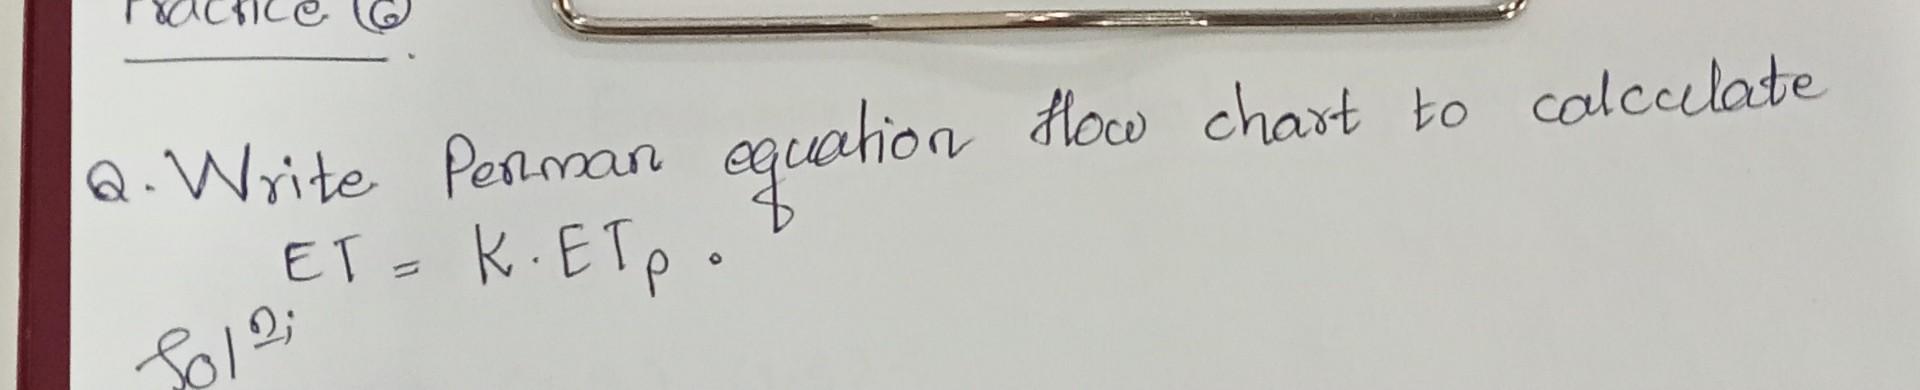 Practice (6)
Q. Write Penman equation flow chart to calculate
ET = K. ETp.
Sol<sup>n</sup>;